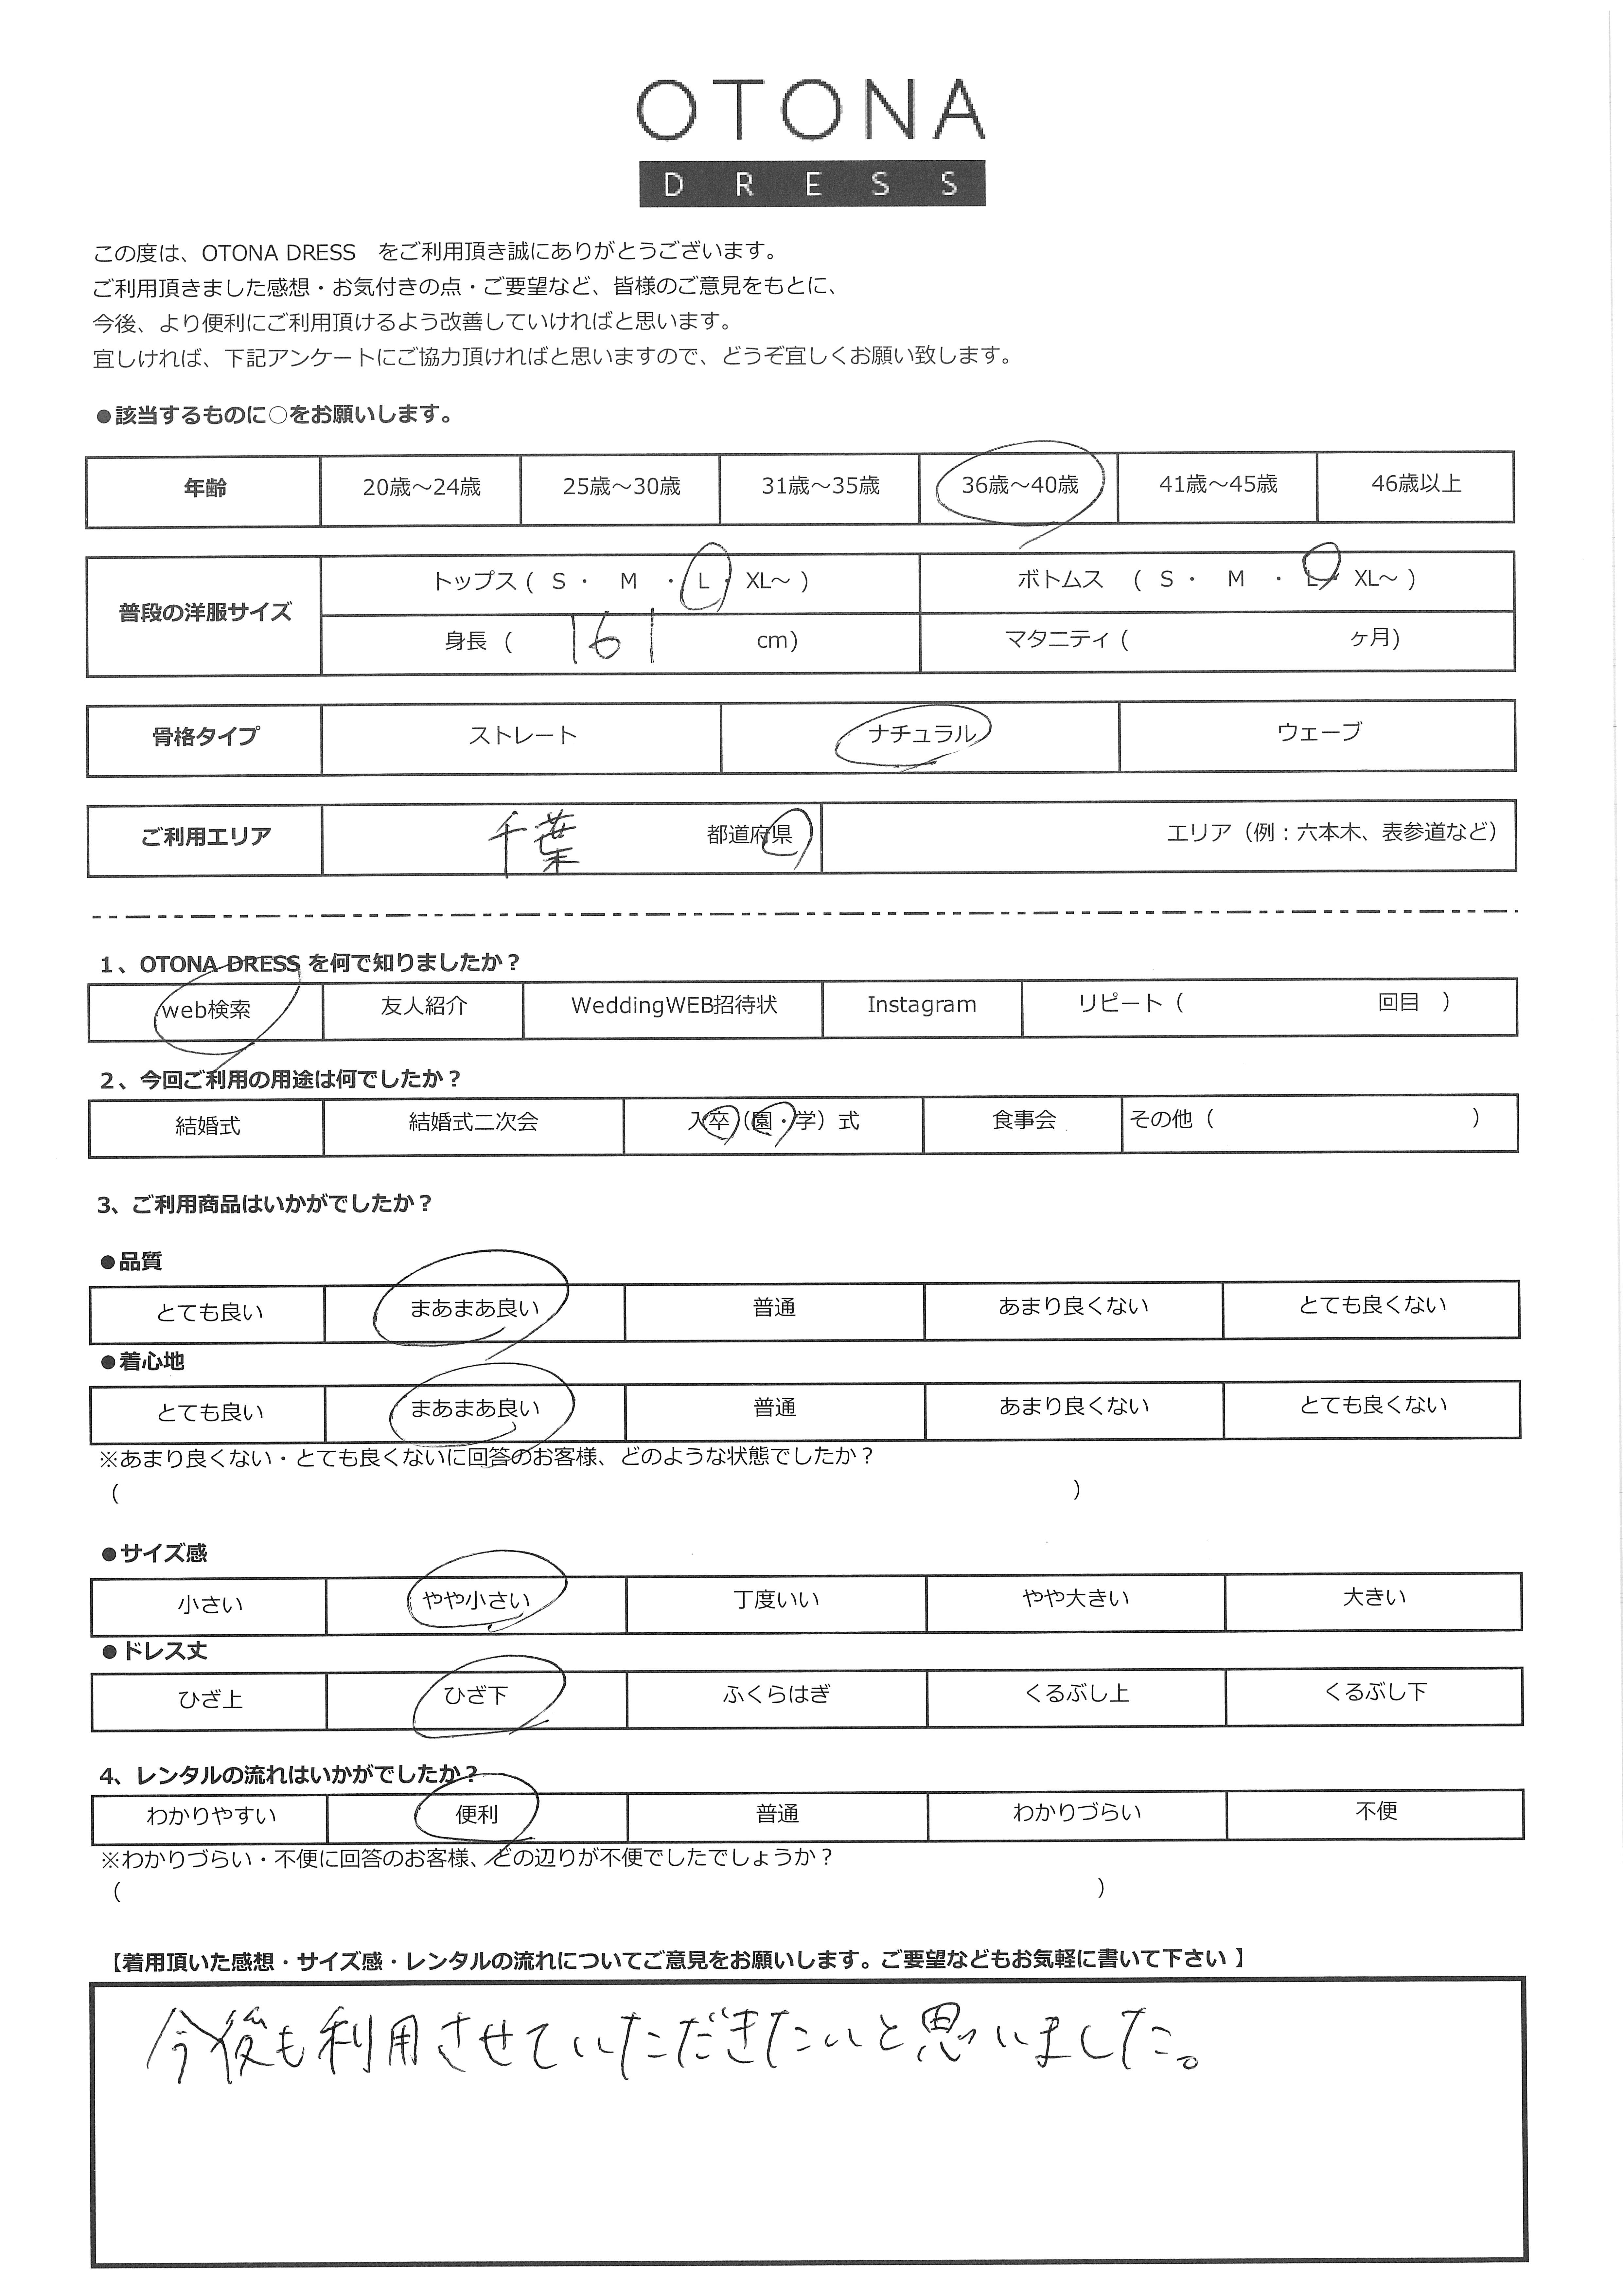 OTONA
DRESS
この度は、OTONA DRESS　をご利用頂き誠にありがとうございます。
ご利用頂きました感想・お気付きの点・ご要望など、皆様のご意見をもとに、
今後、より便利にご利用頂けるよう改善していければと思います。
宜しければ、下記アンケートにご協力頂ければと思いますので、どうぞ宜しくお願い致します。
●該当するものに○をお願いします。
年齢 20歳～24歳 25歳～30歳 31歳～35歳 36歳～40歳 41歳～45歳 46歳以上
普段の洋服サイズ トップス ( S ・ M ・ L ・ XL～ ) ボトムス ( S ・ M ・ L ・ XL～ )
身長 ( 161 cm) マタニティ ( ヶ月)
骨格タイプ ストレート ナチュラル ウェーブ
ご利用エリア 千葉 都道府県 エリア（例：六本木、表参道など）
1、OTONA DRESS を何で知りましたか？
web検索 友人紹介 WeddingWEB招待状 Instagram リピート（ 回目 ）
2、今回ご利用の用途は何でしたか？
結婚式 結婚式二次会 入卒（園・学）式 食事会 その他（ ）
3、ご利用商品はいかがでしたか？
●品質
とても良い まあまあ良い 普通 あまり良くない とても良くない
●着心地
とても良い まあまあ良い 普通 あまり良くない とても良くない
※あまり良くない・とても良くないに回答のお客様、どのような状態でしたか？
（ ）
●サイズ感
小さい やや小さい 丁度いい やや大きい 大きい
●ドレス丈
ひざ上 ひざ下 ふくらはぎ くるぶし上 くるぶし下
4、レンタルの流れはいかがでしたか？
わかりやすい 便利 普通 わかりづらい 不便
※わかりづらい・不便に回答のお客様、どの辺りが不便でしたでしょうか？
（ ）
【着用頂いた感想・サイズ感・レンタルの流れについてご意見をお願いします。ご要望などもお気軽に書いて下さい 】
今後も利用させていただきたいと思いました。